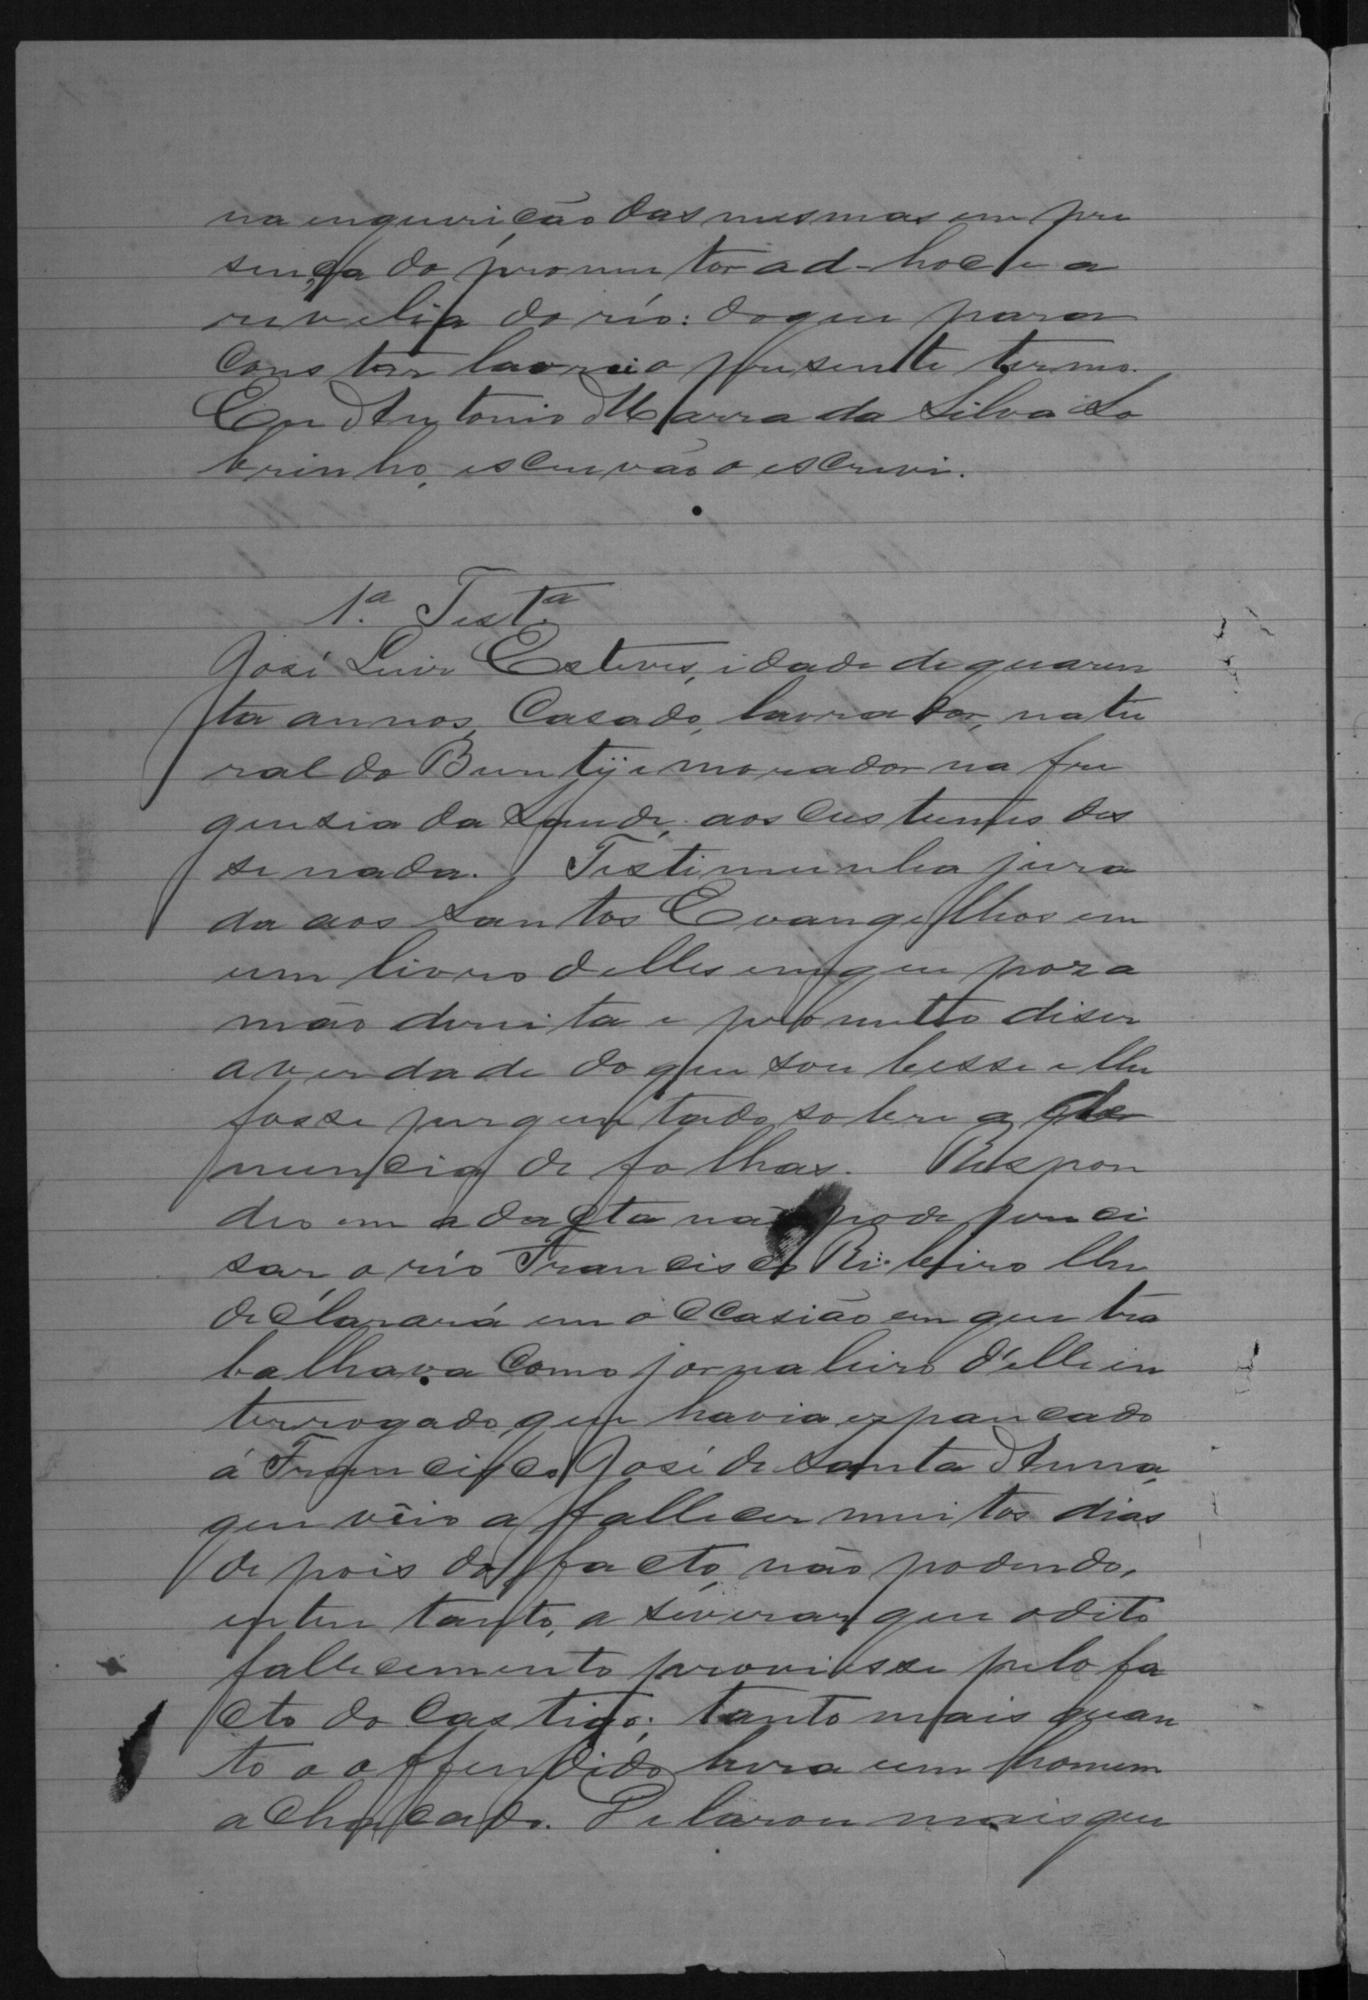 na enquirição das mesmas em pre
sença do promutor ad-hoc e a
revelia do réo: do que para
constar lavrei o presente termo.
Eu Antonio Marra da Silva So
brinho, escrivão o escrevi.
1.ª Test.ª
José Luiz Esteves, idade de quaren
ta annos, casado, lavrador, natu
ral do e morador na fre
guesia da Saude, aos custumes dis
se nada. Testimunha jura
da aos Santos Evangelhos em
um livro delles em que poz a
mão dereita e prometto diser
a verdade do que soubesse e lhe
fosse perguntado sobre a de
nuncia de folhas. Respon
deo em a dacta não pode preci
sar o réo Francisco Ribeiro lhe
declarará em occasião em que tra
balhava como jornaleiro d'elle in
terrogado que havia espancado
á Francisco José de Santa Anna,
que vêio a fallecer muitos dias
depois do facto, não podendo,
entre tanto, a severar que o dito
fallecimento proviesse pelo fa
cto do castigo; tanto mais quan
to o offendido hera um homem
achacado. Delarou mais que